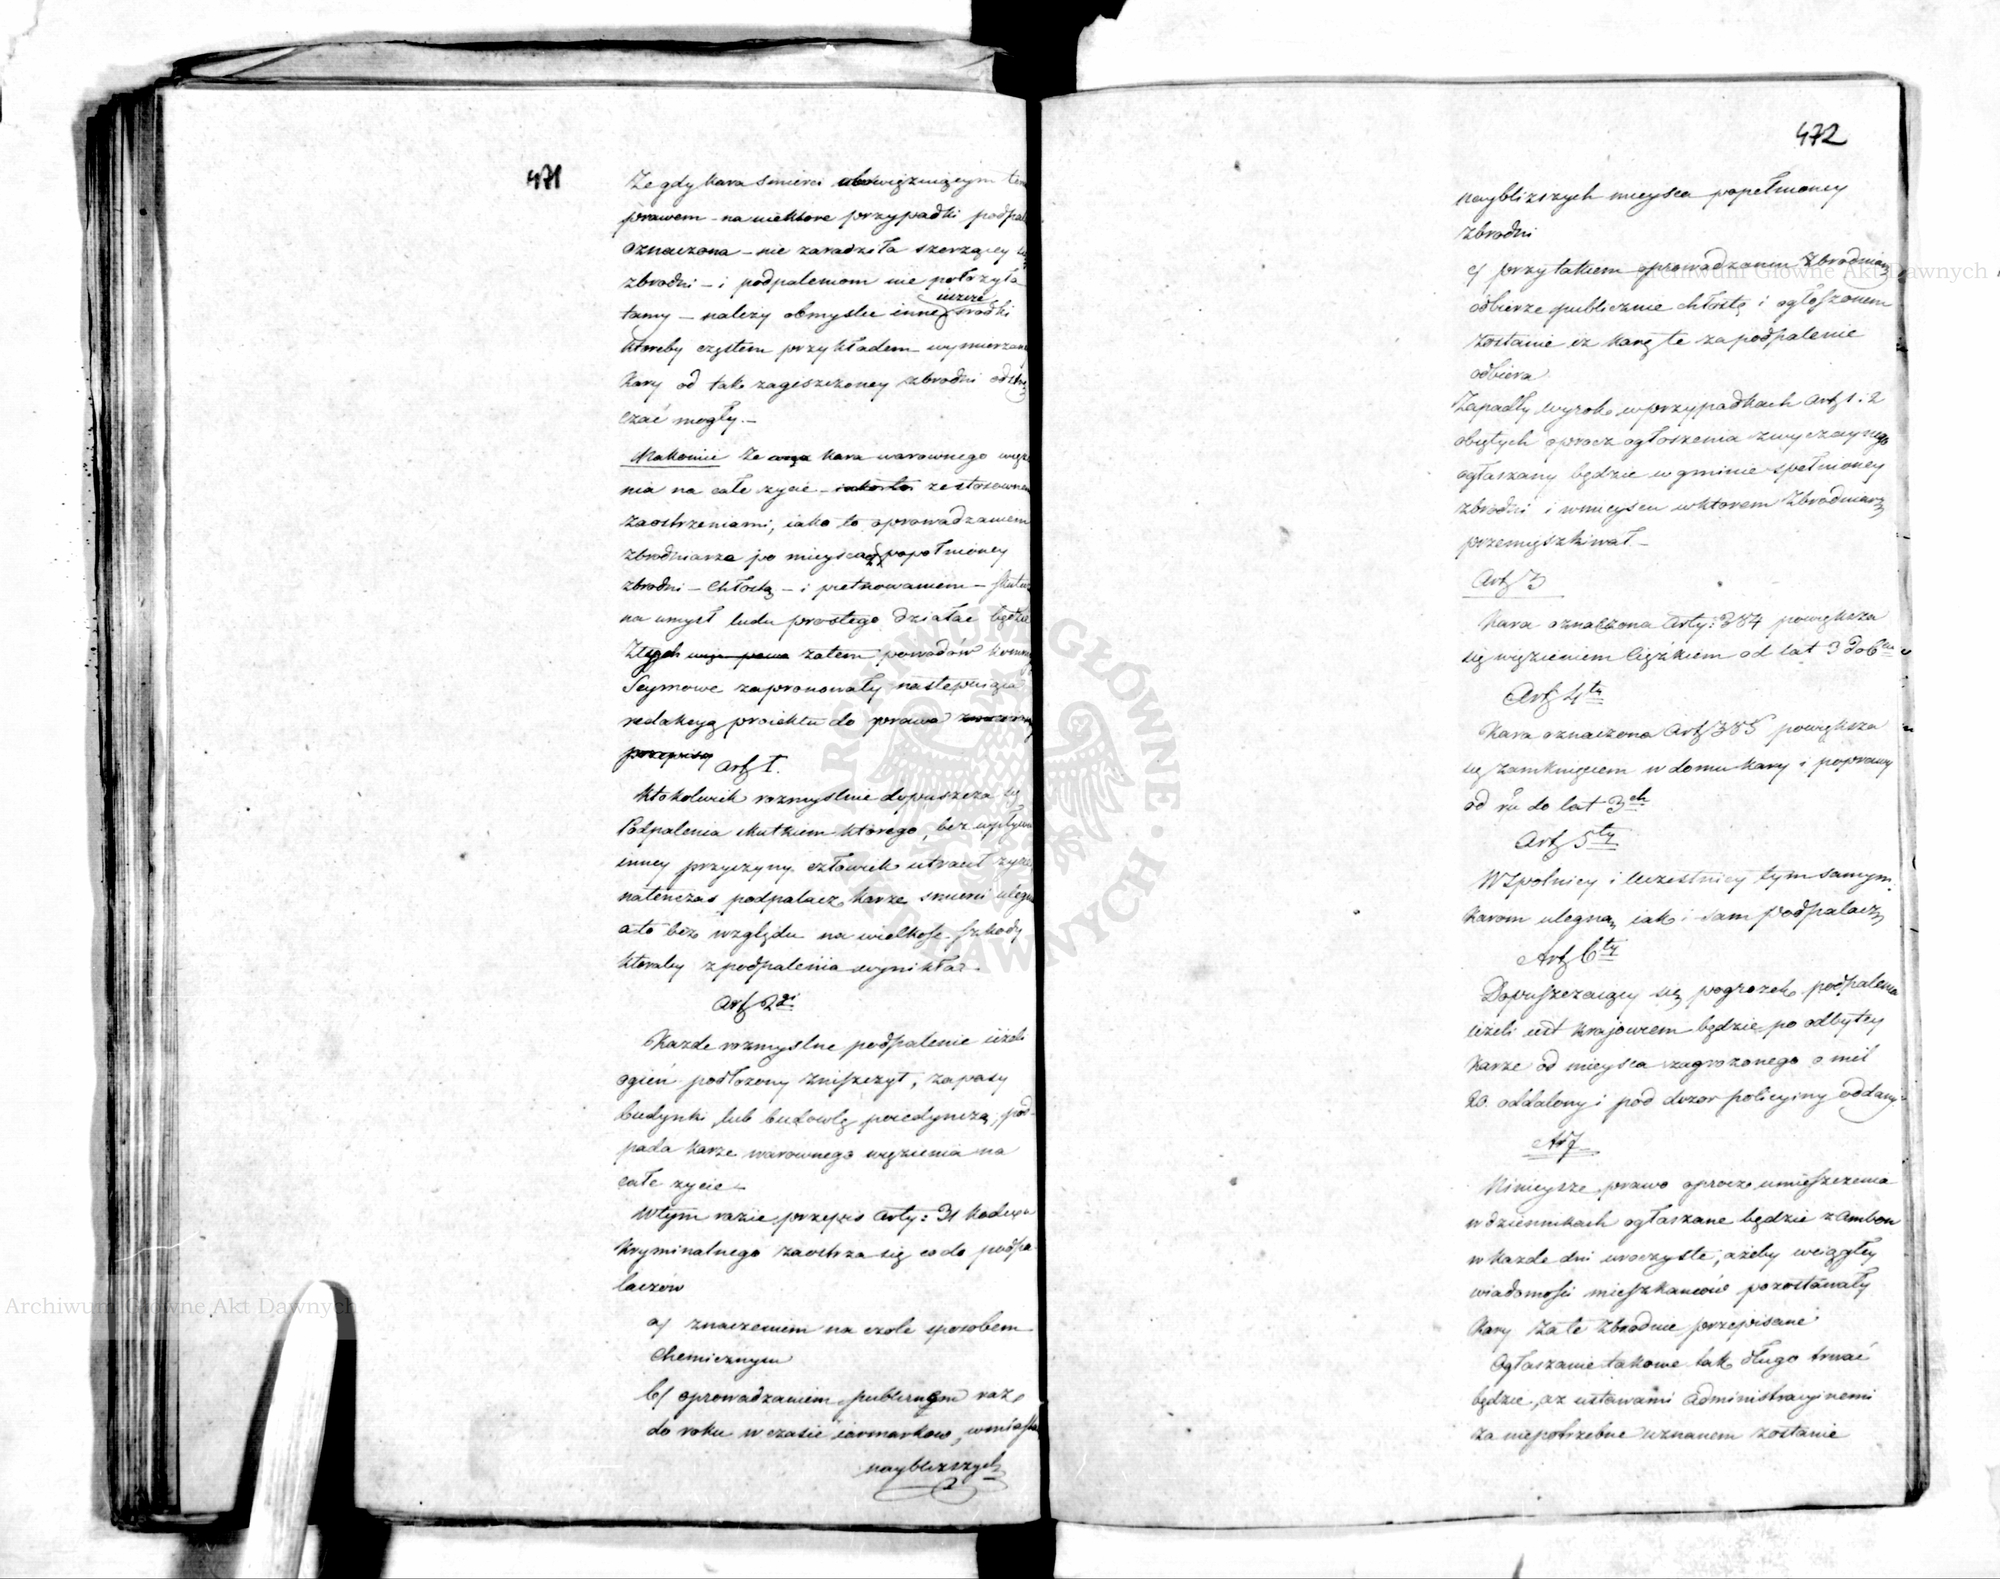 471
Ze gdy kara smierci obowięzuiącym
prawem – na niektóre przypadki podpal
oznaczona – nie zaradziła szerzącey
zbrodni – i podpaleniom nie położyła
tamy – nalezy obmyslec inne srodki
ktoreby częstem przykładem wymierzan
kary od tak zagęszczoney zbrodni odstrę
czać mogły. –
Nakoniec że kara warownego więzie
nia na całe zycie – ze stosownemi
zaostrzeniami, iako to oprowadzaniem
zbrodniarza po mieyscach popełnioney
zbrodni – Chłostą – i piętnowaniem – skutecz
na umysł ludu prostego działac będzie
Z tych zatem powodów
Seymowe zaproponowały następuiącą
redakcyą proiektu do prawa
przepisy
Art I.
Ktokolwiek rozmyslnie dopuszcza się
Podpalenia skutkiem ktorego, bez wpływu
inney przyczyny człowiek utracił zycie
natenczas podpalacz karze smierci ulegnie
a to bez względu na wielkość szkody
ktoraby z podpalenia wynikła.
Art 2gi
Kazde rozmyslne podpalenie iezeli
ogień podłozony zniszczył, zapasy
budynki lub budowlę poiedynczą, pod-
pada karze warownego więzienia na
całe zycie –
W tym razie przepis Arty: 31 Kodexu
Kryminalnego zaostrza się co do podpa-
laczów
a/ znaczeniem na czole sposobem
Chemicznym
b/ oprowadzaniem publicznem raz
do roku w czasie iarmarków, w miastach
naybliższych
472
naybliższych mieysca popełnioney
zbrodni
c/ przy takiem oprowadzaniu Zbrodniarz
odbierze publicznie chłostę i ogłoszonem
zostanie iz karę te za podpalenie
odbiera
Zapadły wyrok w przypadkach Art 1: 2
obiętych oprocz ogłoszenia zwyczaynego
ogłaszany będzie w gminie spełnioney
zbrodni i w mieyscu w ktorem Zbrodniarz
przemieszkiwał –
Art 3
Kara oznaczona Arty: 384 powiększa
się więzieniem ciężkiem od lat 3 do 6ciu
Art 4ty
Kara oznaczona Art 385 powiększa
się zamknięciem w domu kary i poprawy
od rku do lat 3ch
Art 5ty
Wspolnicy i Uczestnicy tym samym
karom ulegną iak i sam podpalacz
Art 6ty
Dopuszczaiący się pogrozek podpalenia
iezeli iest kraiowcem będzie po odbytey
karze od mieysca zagrozonego o mil
20. oddalony i pod dozor policyiny oddany.
Ar 7
Ninieysze prawo oprocz umieszczenia
w dziennikach ogłaszane będzie z Ambon
w kazde dni uroczyste, ażeby w ciągłey
wiadomości mieszkancow pozostawały
kary za te zbrodnie przepisane
Ogłaszanie takowe tak długo trwać
będzie, az ustawami administracyinemi
za niepotrzebne uznanem zostanie
Archiwum Główne Akt Dawnych
Archiwum Główne Akt Dawnych
ARCHIWUM GŁÓWNE AKT DAWNYCH